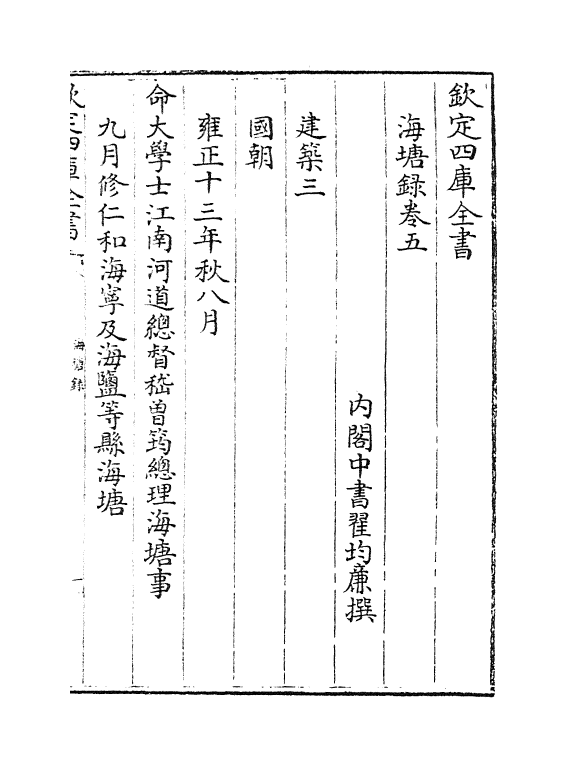 欽定四庫全書
海塘録卷五
内閣中書翟均廉撰
建築三
國朝
雍正十三年秋八月
命大學士江南河道總督嵇曾筠總理海塘事
九月修仁和海寧及海鹽等縣海塘
欽定四庫全書
海塘録
一